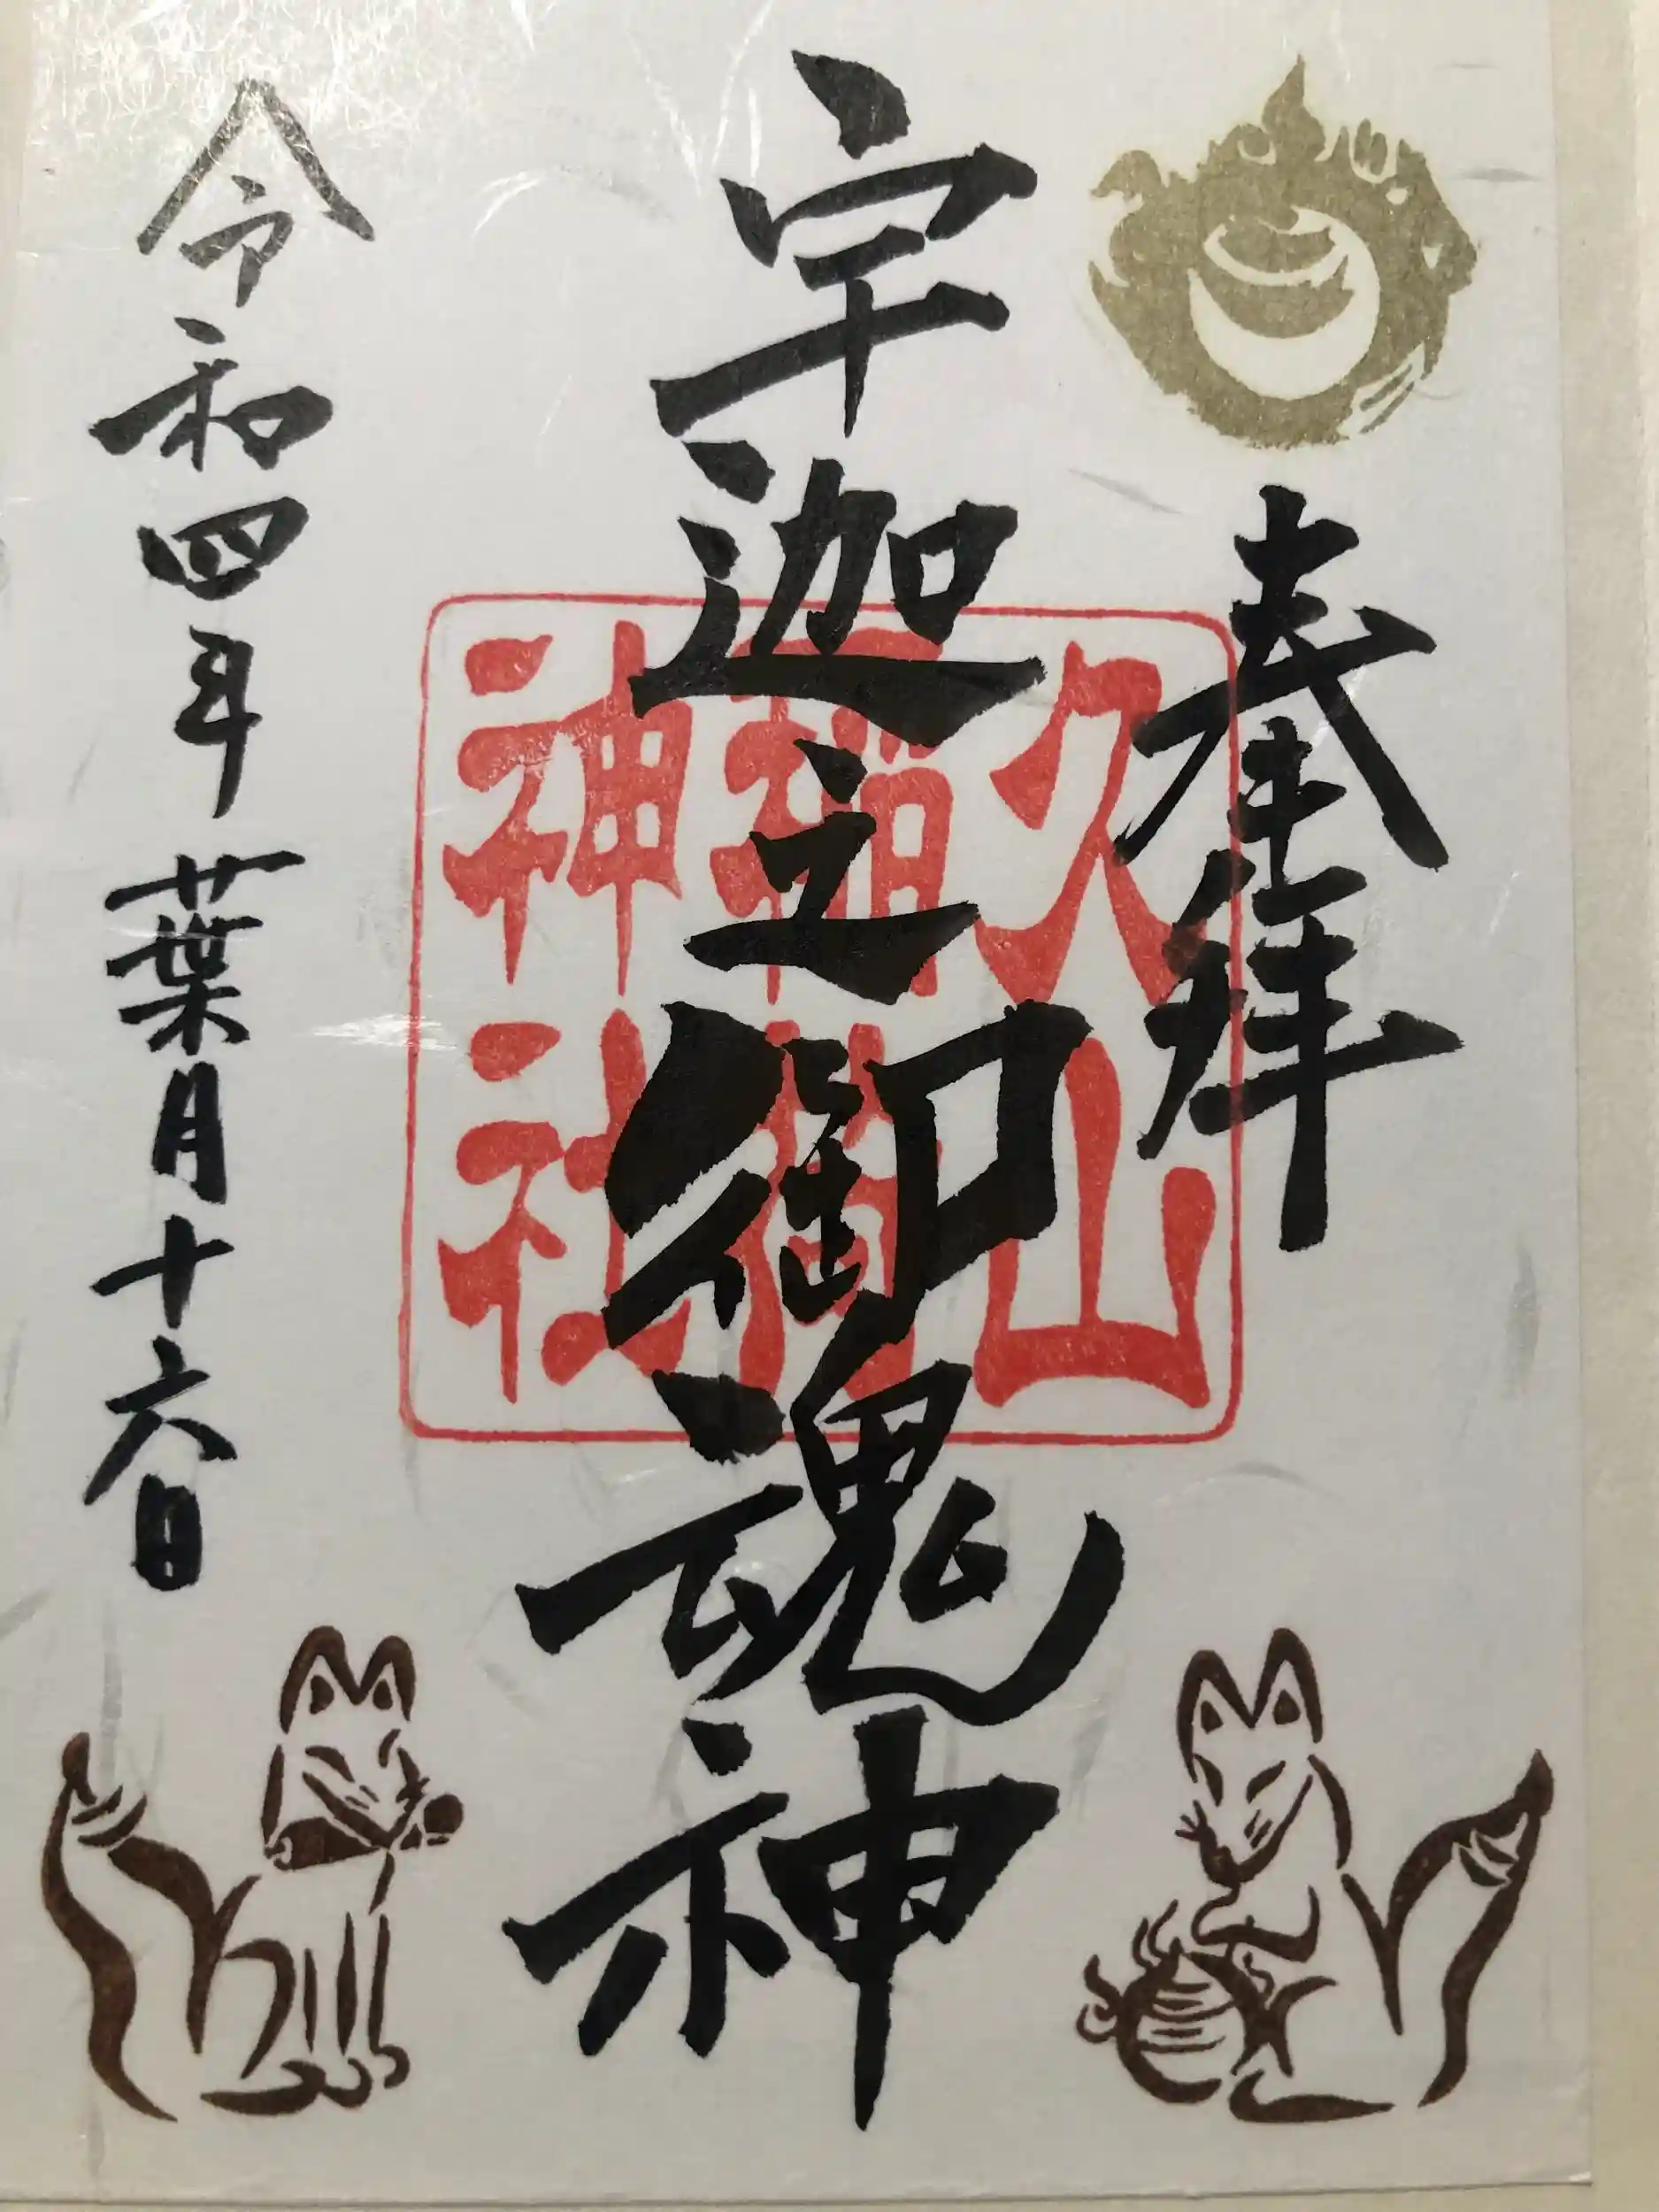 奉拝
宇迦之御魂神
久山
稲荷
神社
令和四年葉月十六日